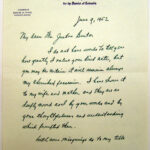 for the District of Columbia
June 9, 1952
My dear Mr. Justice Burton
I do not have words to tell you
how greatly I value your kind note, but
you may be certain it will remain always
my cherished possession. I have shown it
to my wife and mother, and they are as
deeply moved as I by your words and by
your thoughtfulness and understanding
which prompted them.
What were misgivings as to my